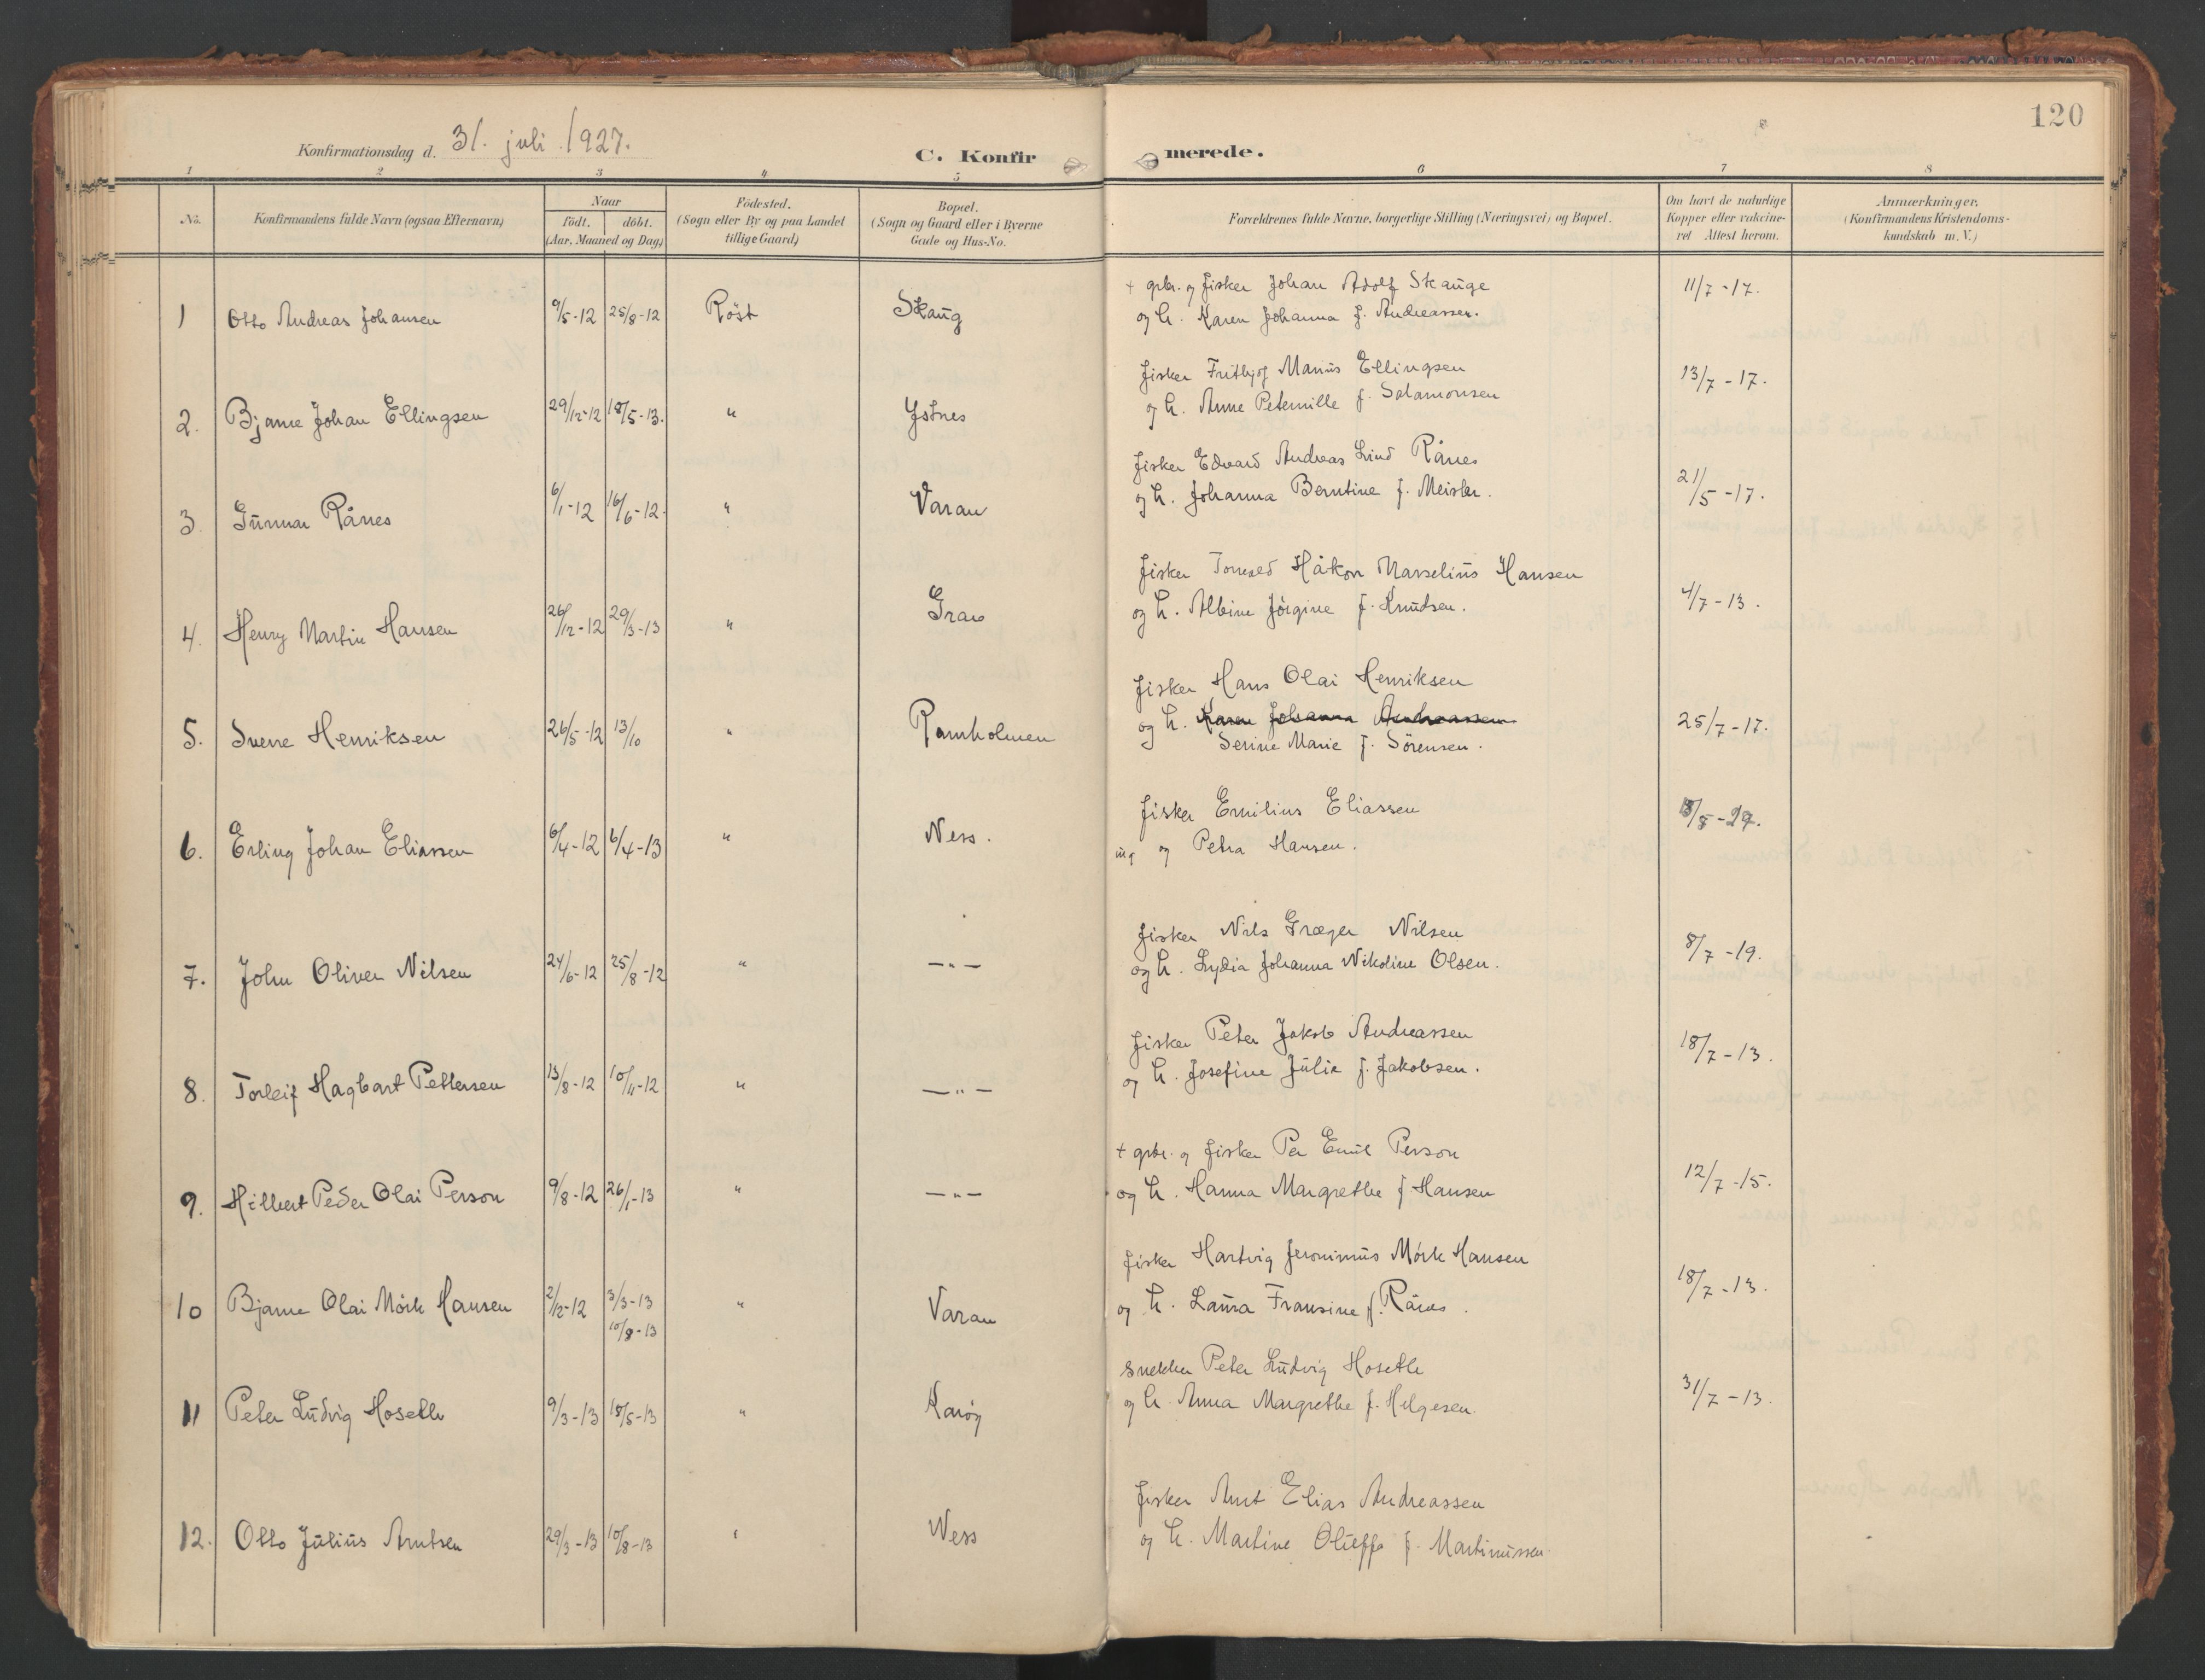 120
Konfirmationsdag d. 31. juli 1927.
C. Konfirmerede.
1 2 3 4 5 6 7 8
No.
Konfirmandens fulde Navn (ogsaa Efternavn)
Naar
født. døbt.
(Aar, Maaned og Dag)
Fødested.
(Sogn eller By og paa Landet
tillige Gaard)
Bopæl.
(Sogn og Gaard eller i Byerne
Gade og Hus-No.
Forældrenes fulde Navne, borgerlige Stilling (Næringsvei) og Bopæl.
Om havt de naturlige
Kopper eller vakcine-
ret Attest herom.
Anmærkninger.
(Konfirmandens Kristendoms-
kundskab m. V.)
1 Otto Andreas Johansen 9/5-12 25/8-12 Röst Skaug
+ gbr. og fisker Johan Adolf Skauge
og h. Karen Johanna f. Andreassen. 11/7-17.
2. Bjarne Johan Ellingsen 29/12-12 18/5-13. " Ystnes
fisker Fritbjof Marius Ellingsen
og h. Anne Peternille f. Salamonsen 13/7-17.
3 Gunnar Rånes 6/1-12 16/6-12. " Varau
fisker Edvard Andreas Lind Rånes
og h. Johanna Berntine f. Meisler. 21/5-17.
4. Henry Martin Hansen 26/12-12 29/3-13 "
fisker Håkon Marselius Hansen
og h. Albine Jörgine f. Knudsen. 4/7-13.
5. Sverre Henriksen 26/5-12 13/10 " Ramholmen
fisker Hans Olai Henriksen
og h. Karen Johanna Andreassen
Serine Marie f. Sörensen. 25/7-17.
6. Erling Johan Eliassen 6/4-12 6/4-13 " Ness.
fisker Emilius Eliassen
ug og Petra Hansen.
7. John Oliver Nilsen 24/6-12 25/8-12 " —"—
fisker Nils Græger Nilsen
og h. Lydia Johanna Nikoline Olsen. 8/7-19.
8. Torleif Hagbart Pettersen 13/8-12 10/11-12 " —"—
fisker Peter Jakob Andreassen
og h. Josefine Julie f. Jakobsen. 18/7-13.
9. Hilbert Peder Olai Person 9/8-12 26/1-13 " —"—
+ gbr. og fisker Per Emil Person
og h. Hanna Margrethe f. Hansen 12/7-15.
10 Bjarne Olai Mörk Hansen 2/12-12 3/3-13 " Varau
10/8-13
fisker Hartvig Jeronimus Mörk Hansen
og h. Laura Fransine f. Rånes. 18/7-13.
11 Peter Ludvig Hoseth 9/3-13 18/5-13 " Karöy
snekker Peter Ludvig Hoseth
og h. Anna Margrethe f. Helgesen. 31/7-13.
12. Otto Julius Arntsen 29/3-13 10/8-13 " Ness
fisker Arnt Elias Andreassen
og h. Martine f. Martinussen